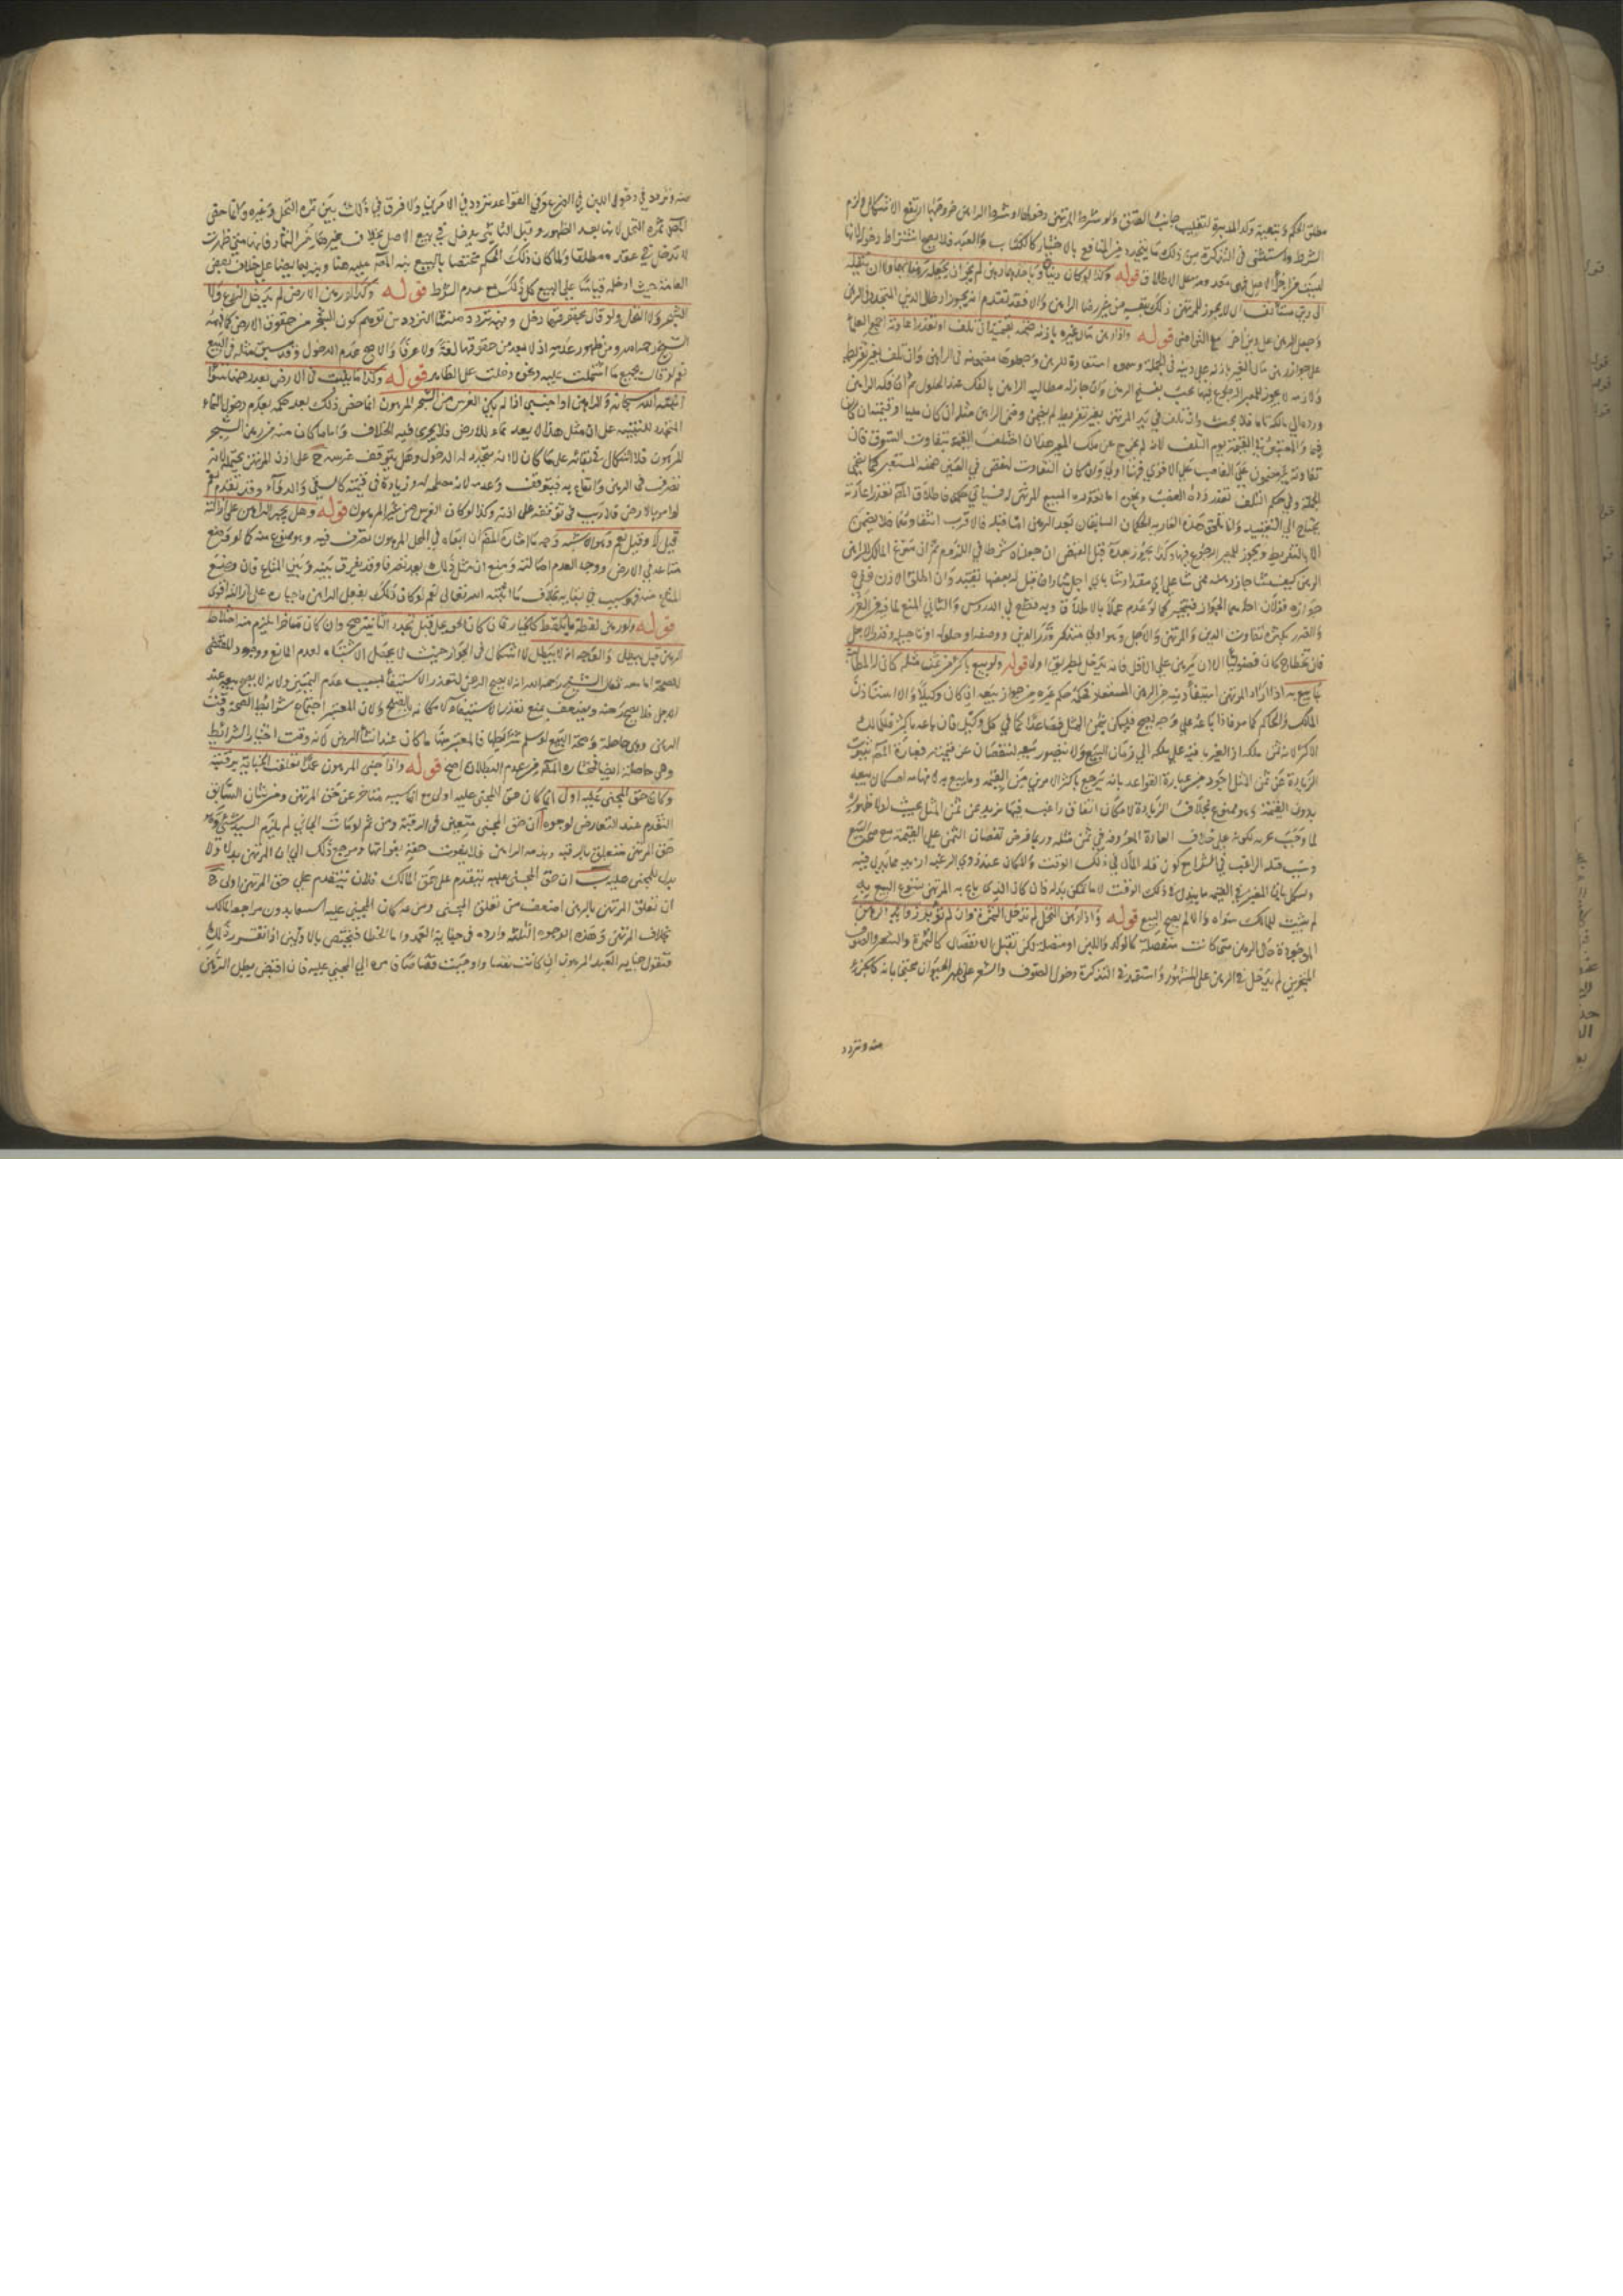 مطلق الحكم وتبعية ولد المدبرة لتغليب جانب العتق ولو شرط المرتهن دخولها او شرط الراهن خروجها ارتفع الاشكال ولزم
الشرط واستثنى في التذكرة من ذلك ما يتجدد من المنافع بالاختيار كاكتساب العبد فلا يصح اشتراط دخوله لانها
ليست من اجزاء الاصل فهي معدومة على الاطلاق قوله وكذا لو كان رهنا وباحدهما رهن لم يجز ان يجعله رهنا بهما ولا ان ينقله
الى دين مستأنف اي لا يجوز للمرتهن ذلك من غير رضا الراهن والا فقد تقدم انه يجوز ادخال الدين المتجدد في الرهن
وجعل الرهن على دين آخر مع التراضي قوله واذا رهن مال غيره باذنه ضمنه بقيمته ان تلف او تعذر اعادته اجمع العلماء
على جواز رهن مال الغير باذنه على دينه في الجملة وسموه استعارة للرهن وجعلوها مضمونة على الراهن وان تلف بغير تفريط
ولازمة لا يجوز للمعير الرجوع فيها بحيث يفسخ الرهن وان جاز له مطالبة الراهن بالفك عند الحلول ثم ان فكه الراهن
ورده الى مالكه تاما فلا بحث وان تلف في يد المرتهن بغير تفريط لم يضمن وضمن الراهن مثله ان كان مثليا او قيمته ان كان
قيميا والمعتبر في القيمة يوم التلف لانه لم يخرج عن ملك المعير هذا ان اختلفت القيمة بتفاوت السوق فان
تفاوته غير مضمون على الغاصب على الاقوى فهنا اولى ولو كان التفاوت لنقص في العين ضمنه المستعير كما يضمن
الجملة وفي حكم التلف تعذر رده
يحتاج الى التقييد وانما تلحق هذه العارية الحكمان السابقان بعد الرهن اما قبله فالاقرب انتفاؤهما فلا يضمن
الا بالتفريط ويجوز للمعير الرجوع فيها وكذا يجوز بعده قبل القبض ان جعلناه شرطا في اللزوم ثم ان سوغ المالك للراهن
الرهن كيف شاء جاز رهنه ممن شاء على اي مقدار شاء باي اجل شاء وان قيل له بعضها تقيد وان اطلق الاذن ففي
جوازه قولان احدهما الجواز فيتخير كما لو عمم عملا بالاطلاق وبه قطع في الدروس والثاني المنع لما فيه من الغرر
والضرر بكثرة تفاوت الدين والمرتهن والاجل وهو اولى فيذكر قدر الدين ووصفه او حلوله او تأجيله وقدر الاجل
فان تخطاه كان فضوليا الا ان يرهن على الاقل فانه يدخل بطريق اولى قوله ولو بيع باكثر من ثمن مثله كان له المطالبة
بما بيع به اذا اراد المرتهن استيفاء دينه من الرهن المستعار فحكمه حكم غيره من جواز بيعه ان كان وكيلا والا استأذن
المالك والحاكم كما مر فاذا باعه على وجه يصح فليكن بثمن المثل فصاعدا كما في كل وكيل فان باعه باكثر فللمالك
الاكثر لانه ثمن ملكه اذ العين باقية على ملكه الى زمان البيع ولا يتصور بيعه لنقصان عن قيمته فعبارة المصنف بثبوت
الزيادة عن ثمن المثل اجود من عبارة القواعد بانه يرجع باكثر الامرين من القيمة وما بيع به لايهامه امكان بيعه
بدون القيمة وهو ممنوع بخلاف الزيادة لامكان اتفاق راغب فيها يزيد عن ثمن المثل بحيث لولا ظهوره
لما وجب عرضه لكونه على خلاف العادة المعروفة في ثمن مثله وربما فرض نقصان الثمن على القيمة مع صحة البيع
وسبب قلة الراغب في الشراء
ويشكل بان المعتبر في القيمة ما يبذل في ذلك الوقت لا ما يمكن بذله فان كان الذي باع به المرتهن يسوغ البيع به
لم يثبت للمالك سواه والا لم يصح البيع قوله واذا رهن النخل لم تدخل الثمرة وان لم تؤبر زوائد الرهن
الموجودة حال الرهن متى كانت منفصلة كالولد واللبن او متصلة لكن تقبل الانفصال كالثمرة والشعر والصوف
المنجزين لم يدخل في الرهن على المشهور واستقرب في التذكرة دخول الصوف والشعر على ظهر الحيوان محتجا بانه كالجزء
منه وتردد
منه وتردد في دخول اللبن في الضرع وفي القواعد تردد في الامرين ولا فرق في ذلك بين ثمرة النخل وغيره وانما خص
المصنف ثمرة النخل لانها بعد الظهور وقبل التأبير يدخل في بيع الاصل بخلاف غيرها من الثمار فانها متى ظهرت
لا تدخل في عقده مطلقا ولما كان ذلك الحكم مختصا بالبيع نبه المصنف عليه هنا ونبه به ايضا على خلاف بعض
العامة حيث ادخله قياسا على البيع كل ذلك مع عدم الشرط قوله وكذا لو رهن الارض لم يدخل الزرع ولا
الشجر ولا النخل ولو قال بحقوقها دخل وفيه تردد منشأ التردد من توهم كون الشجر من حقوق الارض كما فهمه
الشيخ رحمه الله ومن ظهور عدمه اذ لا يعد من حقوقها لغة ولا عرفا والاصح عدم الدخول وقد سبق مثله في البيع
نعم لو قال بجميع ما اشتملت عليه ونحوه دخلت على الظاهر قوله وكذا ما ينبت في الارض بعد رهنها سواء
انبته الله سبحانه او الراهن او اجنبي اذا لم يكن الغرس من الشجر المرهون انما خص ذلك بعد حكمه بعدم دخول النماء
المتجدد للتنبيه على ان مثل هذا لا يعد نماء للارض فلا يجري فيه الخلاف واما ما كان منه من رهن الشجر
المرهون فلا اشكال في بقائه على ما كان
تصرف في الرهن وانتفاع به فيتوقف وعدمه لانه مصلحة له وزيادة في قيمته كالسقي والدواء وقد تقدم نعم
لو اضر بالارض فلا ريب في توقفه على اذنه وكذا لو كان الغرس من غير المرهون قوله وهل يجبر الراهن على ازالته
قيل لا وقيل نعم وهو الاشبه وجه ما اختاره المصنف ان ابقاءه في المحل المرهون تصرف فيه وهو ممنوع منه كما لو وضع
متاعه في الارض ووجه العدم اصالته ومنع ان مثل ذلك يعد تصرفا وقد يفرق بينه وبين المتاع فان وضع
المتاع منه وسبب في بقائه بخلاف ما انبته الله تعالى نعم لو كان ذلك بفعل الراهن فاجباره على ازالته اقوى
قوله ولو رهن لقطة مما يلقط كالخيار فان كان الحق يحل قبل تجدد الثانية صح وان كان متأخرا يلزم منه اختلاط
الرهن قيل يبطل والوجه انه لا يبطل لا اشكال في الجواز حيث لا يحصل الاشتباه لعدم المانع ووجود المقتضي
للصحة اما معه فقال الشيخ رحمه الله انه لا يصح الرهن لتعذر الاستيفاء بسبب عدم التميز ولانه لا يصح بيعه عند
الاجل فلا يصح رهنه ويضعف بمنع تعذر الاستيفاء لامكانه بالصلح ولان المعتبر اجتماع شرائط الصحة وقت
الرهن وهي حاصلة وصحة البيع لو سلم شرطيتها فالمعتبر منها ما كان عند انشاء الرهن لانه وقت اعتبار الشرائط
وهي حاصلة ايضا فمختار المصنف من عدم البطلان اصح قوله واذا جنى المرهون عمدا تعلقت الجناية برقبته
وكان حق المجني عليه اولى انما كان حق المجني عليه اولى مع ان سببه متأخر عن حق المرتهن ومن شأن السابق
التقدم عند التعارض لوجوه آ ان حق المجني متعين في الرقبة ومن ثم لو مات الجاني لم يلزم السيد شيء و
حق المرتهن متعلق بالرقبة وبذمة الراهن فلا يفوت حقه بفواتها ومرجع ذلك الى ان للمرتهن بدلا ولا
بدل للمجني عليه ب ان حق المجني عليه يتقدم على حق المالك فلان يتقدم على حق المرتهن اولى ج
ان تعلق المرتهن بالرهن اضعف من تعلق المجني ومن ثم كان للمجني عليه استيفاؤه بدون مراجعة المالك
بخلاف المرتهن وهذه الوجوه الثلثة واردة في جناية العمد واما الخطأ فيختص بالاولين اذا تقرر ذلك
فنقول جناية العبد المرهون ان كانت نفسا واوجبت قصاصا فامره الى المجني عليه فان اقتص بطل الرهن